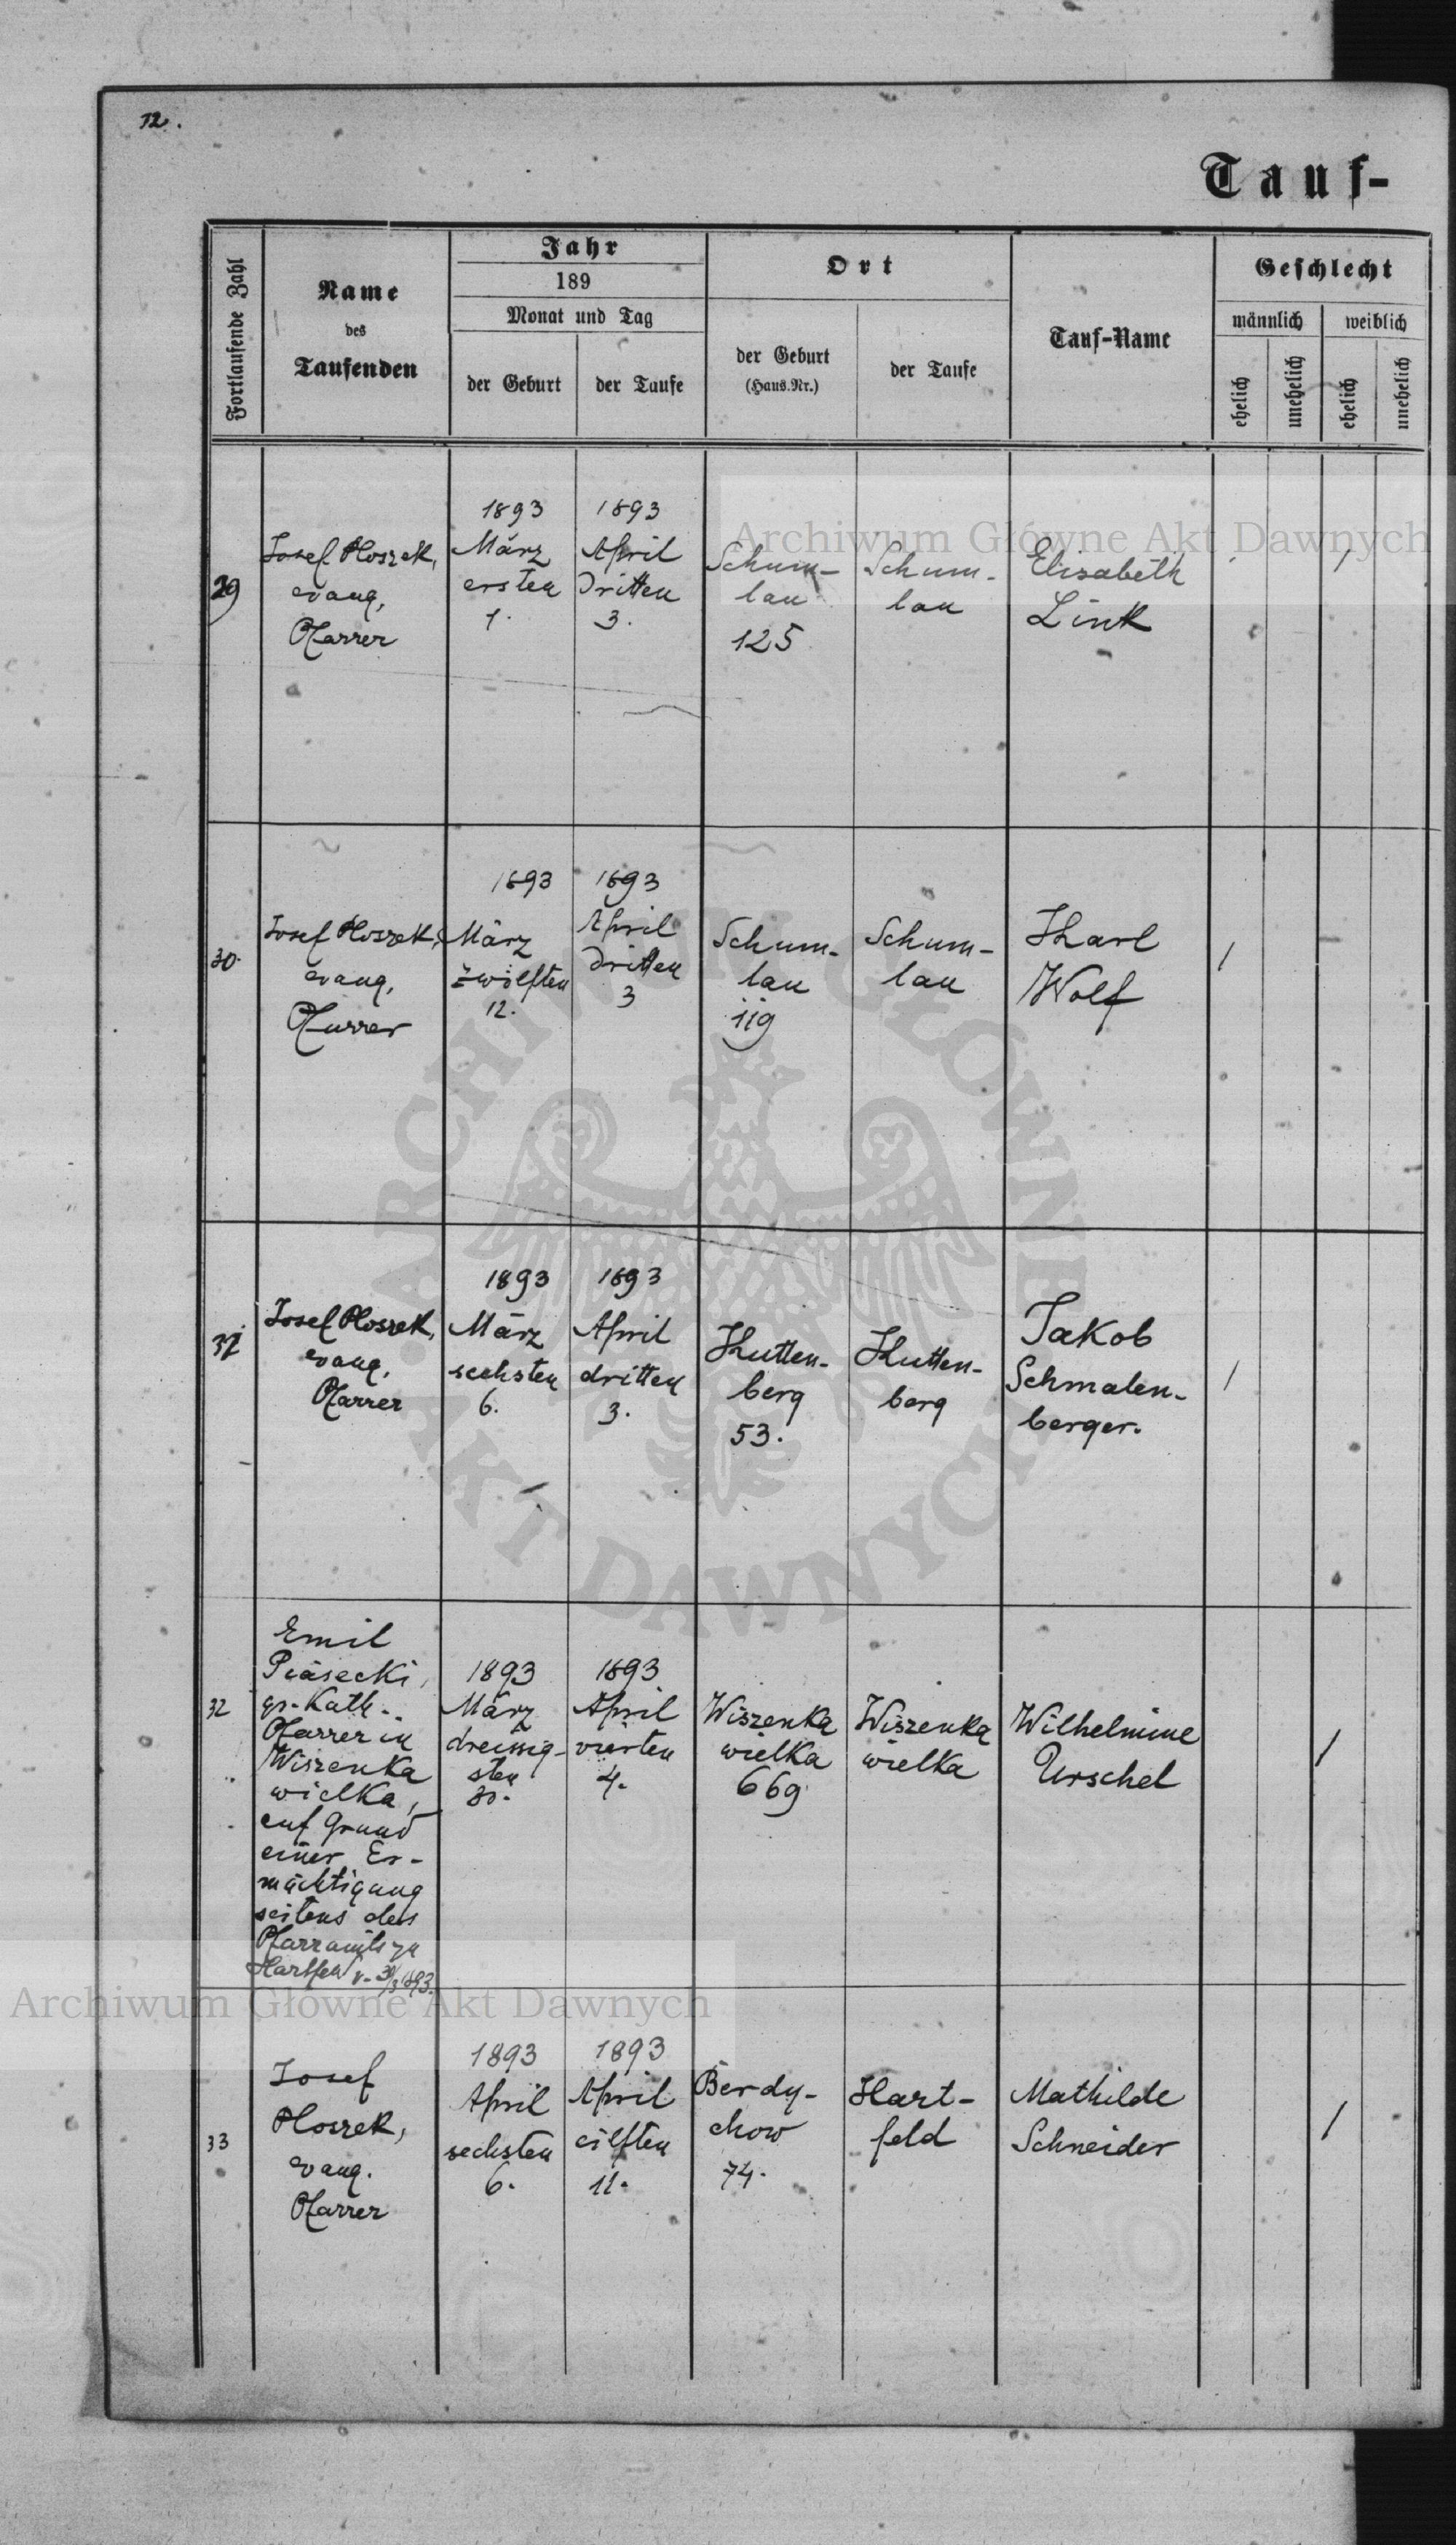 12.
Tauf-
Fortlaufende Zahl
Name
des
Taufenden
Jahr
189
Monat und Tag
der Geburt
der Taufe
Ort
der Geburt
(Haus.Nr.)
der Taufe
Tauf-Name
Geschlecht
männlich
weiblich
ehelich
unehelich
ehelich
unehelich
29
Josef Ploszek,
evang.
Pfarrer
1893
März
ersten
1.
1893
April
dritten
3.
Schum-
lau
125
Schum-
lau
Elisabeth
Link
1
30.
Josef Ploszek,
evang.
Pfarrer
1893
März
zwölften
12.
1893
April
dritten
3
Schum-
lau
119
Schum-
lau
Karl
Wolf
1
31
Josef Ploszek,
evang.
Pfarrer
1893
März
sechsten
6.
1893
April
dritten
3.
Kutten-
berg
53.
Kutten-
berg
Jakob
Schmalen-
berger.
1
32
Emil
Piasecki,
gr.-Kath.
Pfarrer in
Wiszenka
wielka,
auf Grund
einer Er-
mächtigung
seitens des
Pfarramts zu
Hartfeld v. 30/3 1893.
1893
März
dreissig-
sten
30.
1893
April
vierten
4.
Wiszenka
wielka
669
Wiszenka
wielka
Wilhelmine
Urschel
1
33
Josef
Ploszek,
evang.
Pfarrer
1893
April
sechsten
6.
1893
April
eilften
11.
Berdy-
chow
74.
Hart-
feld
Mathilde
Schneider
1
Archiwum Główne Akt Dawnych
ARCHIWUM GŁÓWNE
AKT DAWNYCH
Archiwum Główne Akt Dawnych